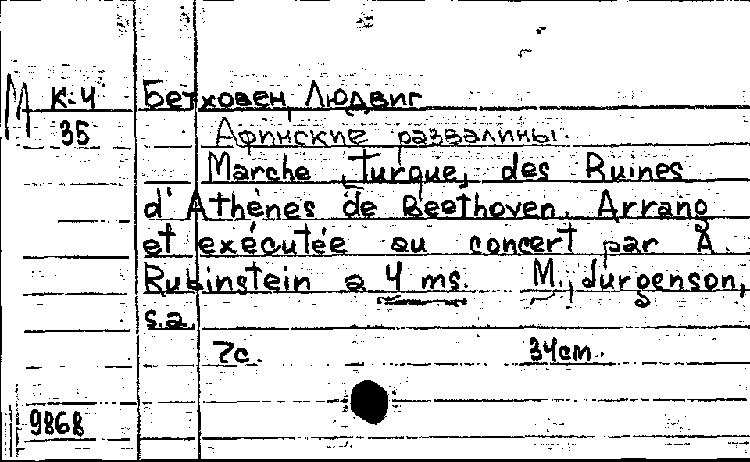 М К-4 Бетховен, Людвиг
35 Афинские развалины.
Marche Turque, des Ruines
d'Athènes de Beethoven. Arrang
et exécutée au concert par A.
Rubinstein a 4 ms. M., Jurgenson,
s.a.
7с. 34см.
9868